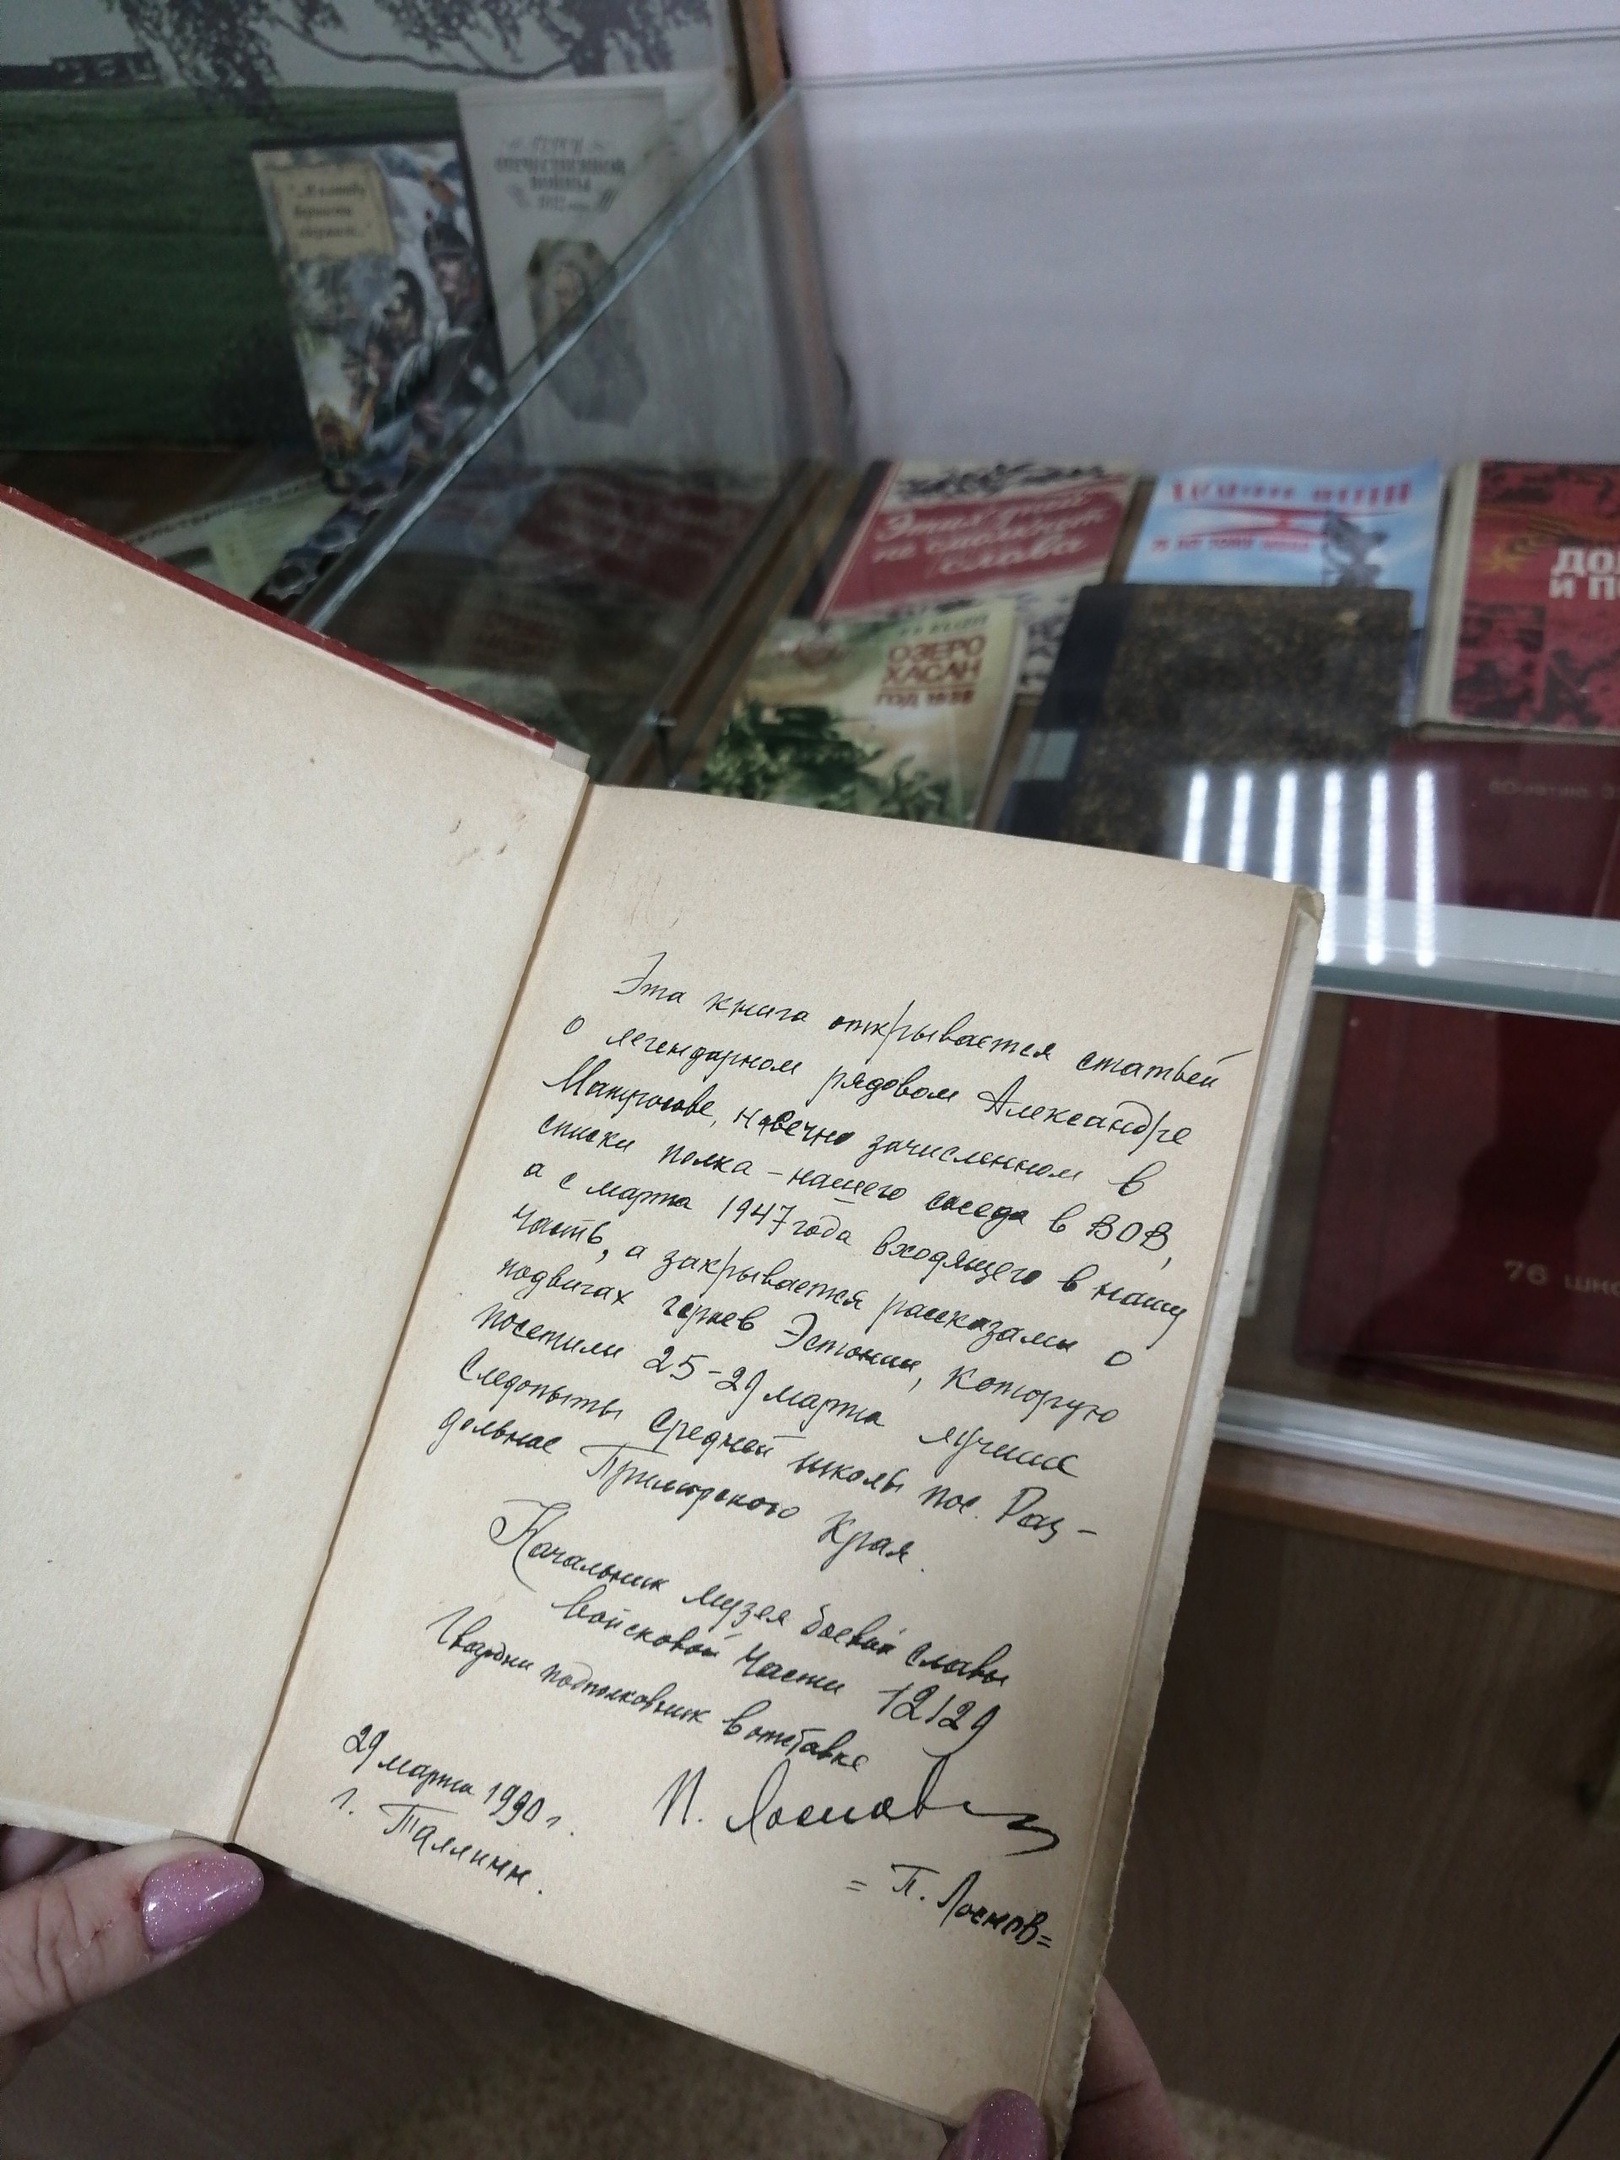 ОТЕЧЕСТВЕННОЙ
ВОЙНЫ
1812
Этих дней
не смолкнет
слава
ОЗЕРО
ХАСАН
ГОД 1938
ДО
И П
76
Эта книга открывается статьей
о легендарном рядовом Александре
Матросове, навечно зачисленном в
списки полка – нашего соседа в ВОВ,
а с марта 1947 года входящего в нашу
часть, а закрывается рассказами о
подвигах героев Эстонии, которую
посетили 25-29 марта лучшие
следопыты средней школы пос. Раз-
дольное Приморского края.
Начальник музея боевой славы
войсковой части 12129
Гвардии подполковник в отставке
29 марта 1990 г.
г. Таллинн.
П. Лосков
= П. Лосков =